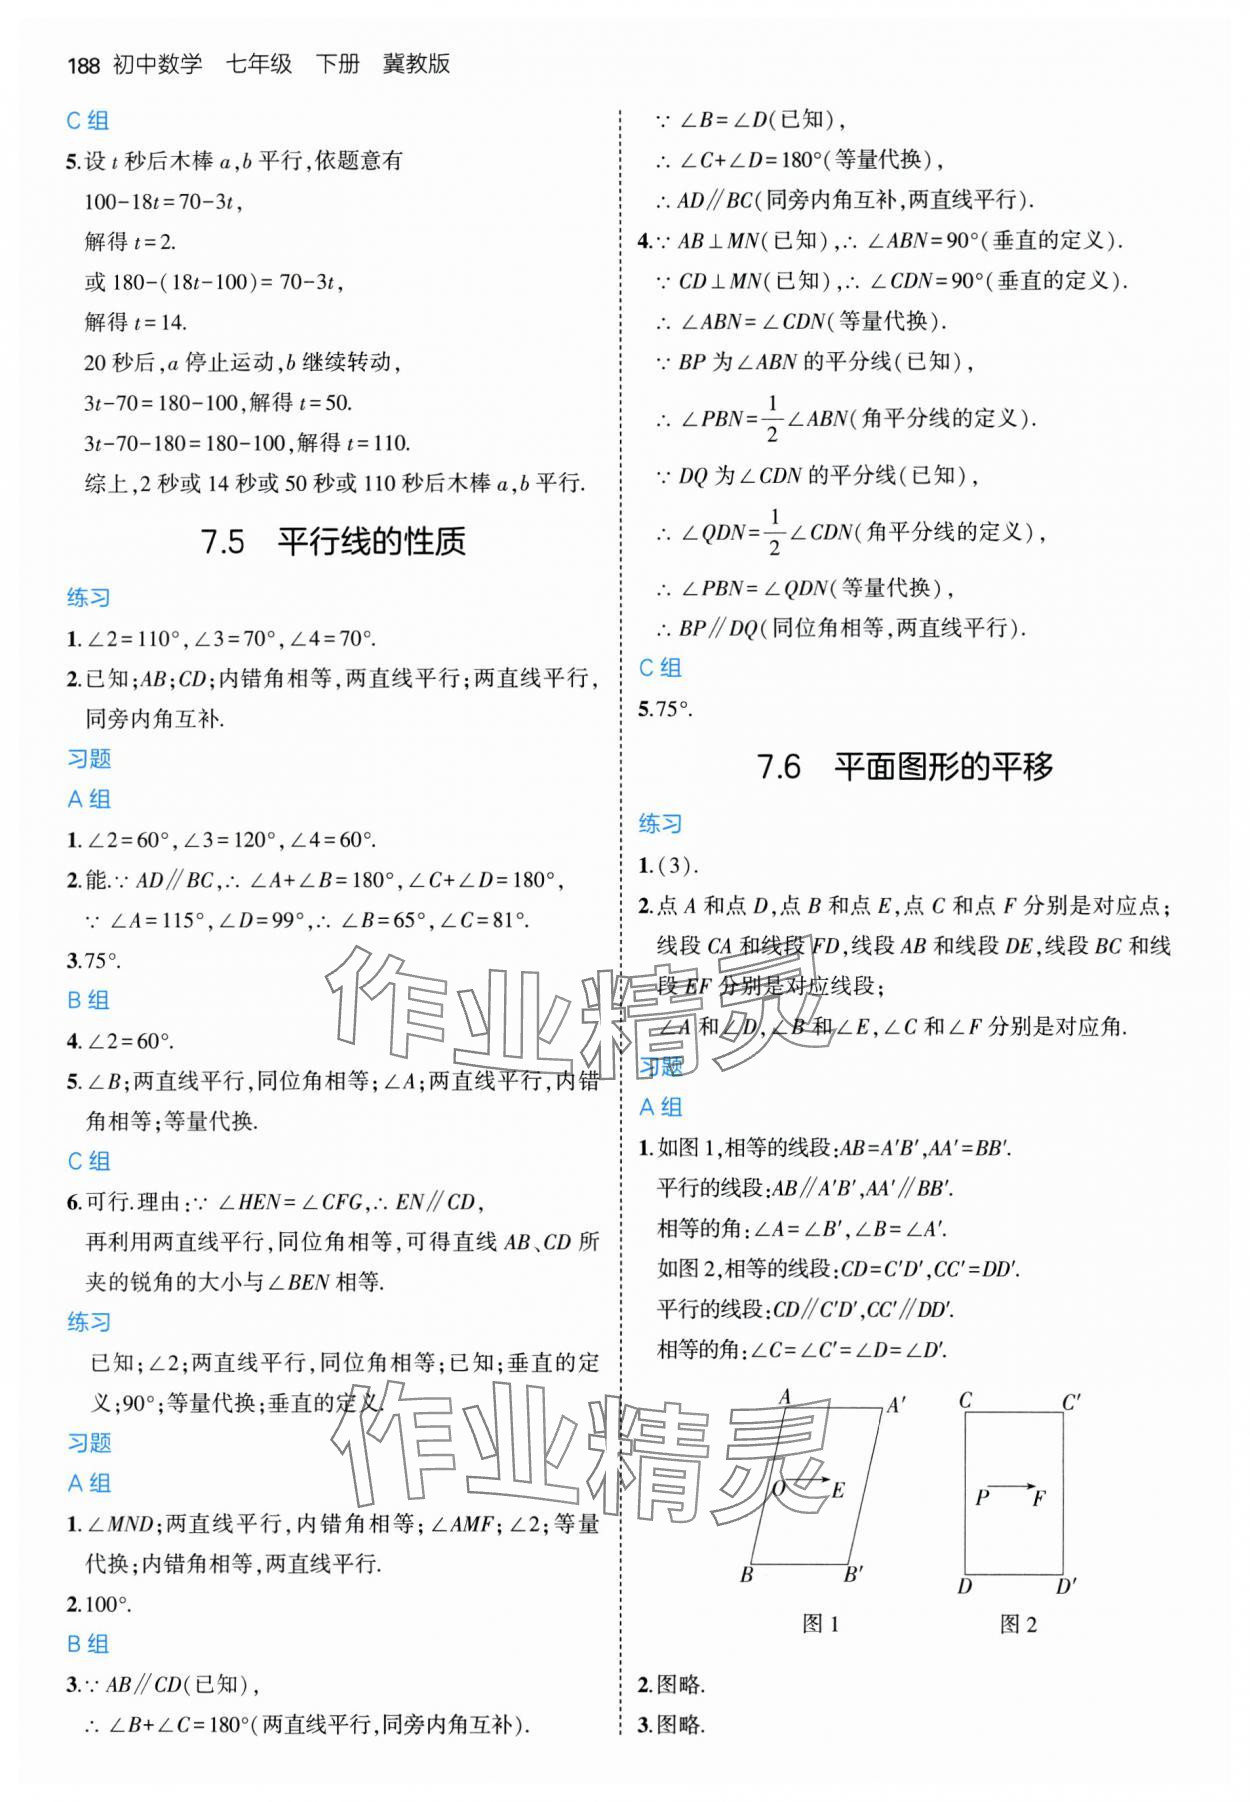 188 初中数学 七年级 下册 冀教版
C 组
5.设 t 秒后木棒 a,b 平行,依题意有
100-18t=70-3t,
解得 t=2.
或 180-(18t-100)=70-3t,
解得 t=14.
20 秒后,a 停止运动,b 继续转动,
3t-70=180-100,解得 t=50.
3t-70-180=180-100,解得 t=110.
综上,2 秒或 14 秒或 50 秒或 110 秒后木棒 a,b 平行.
7.5 平行线的性质
练习
1.∠2=110°,∠3=70°,∠4=70°.
2.已知;AB;CD;内错角相等,两直线平行;两直线平行,
同旁内角互补.
习题
A 组
1.∠2=60°,∠3=120°,∠4=60°.
2.能.∵ AD∥BC,∴ ∠A+∠B=180°,∠C+∠D=180°,
∵ ∠A=115°,∠D=99°,∴ ∠B=65°,∠C=81°.
3.75°.
B 组
4.∠2=60°.
5.∠B;两直线平行,同位角相等;∠A;两直线平行,内错
角相等;等量代换.
C 组
6.可行.理由:∵ ∠HEN=∠CFG,∴ EN∥CD,
再利用两直线平行,同位角相等,可得直线 AB、CD 所
夹的锐角的大小与∠BEN 相等.
练习
已知;∠2;两直线平行,同位角相等;已知;垂直的定
义;90°;等量代换;垂直的定义.
习题
A 组
1.∠MND;两直线平行,内错角相等;∠AMF;∠2;等量
代换;内错角相等,两直线平行.
2.100°.
B 组
3.∵ AB∥CD(已知),
∴ ∠B+∠C=180°(两直线平行,同旁内角互补).
∵ ∠B=∠D(已知),
∴ ∠C+∠D=180°(等量代换),
∴ AD∥BC(同旁内角互补,两直线平行).
4.∵ AB⊥MN(已知),∴ ∠ABN=90°(垂直的定义).
∵ CD⊥MN(已知),∴ ∠CDN=90°(垂直的定义).
∴ ∠ABN=∠CDN(等量代换).
∵ BP 为∠ABN 的平分线(已知),
∴ ∠PBN=1/2∠ABN(角平分线的定义).
∵ DQ 为∠CDN 的平分线(已知),
∴ ∠QDN=1/2∠CDN(角平分线的定义),
∴ ∠PBN=∠QDN(等量代换),
∴ BP∥DQ(同位角相等,两直线平行).
C 组
5.75°.
7.6 平面图形的平移
练习
1.(3).
2.点 A 和点 D,点 B 和点 E,点 C 和点 F 分别是对应点;
线段 CA 和线段 FD,线段 AB 和线段 DE,线段 BC 和线
段 EF 分别是对应线段;
∠A 和∠D,∠B 和∠E,∠C 和∠F 分别是对应角.
习题
A 组
1.如图 1,相等的线段:AB=A′B′,AA′=BB′.
平行的线段:AB∥A′B′,AA′∥BB′.
相等的角:∠A=∠B′,∠B=∠A′.
如图 2,相等的线段:CD=C′D′,CC′=DD′.
平行的线段:CD∥C′D′,CC′∥DD′.
相等的角:∠C=∠C′=∠D=∠D′.
A A′ C C′
O E P F
B B′ D D′
图 1 图 2
2.图略.
3.图略.
作业精灵
作业精灵